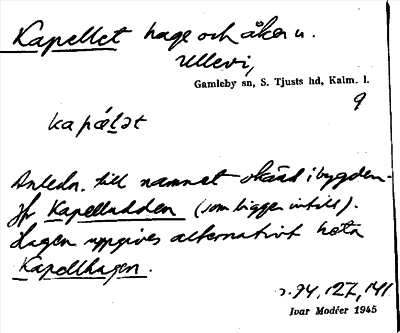 Kapellet hage och åker u.
Ullevi,
Gamleby sn, S. Tjusts hd, Kalm. l.
9
kapǽlət
Anledn. till namnet okänd i bygden.
Jfr Kapelladden (som ligger intill).
Hagen uppgives alternativt heta
Kapellhagen.
s. 94, 127, 141
Ivar Modéer 1945